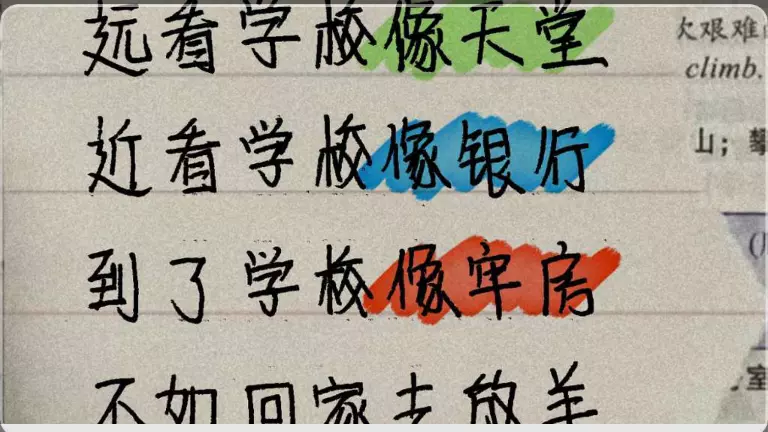 远看学校像天堂
近看学校像银行
到了学校像牢房
不如回家去放羊
次艰难
climb.
山；攀
室